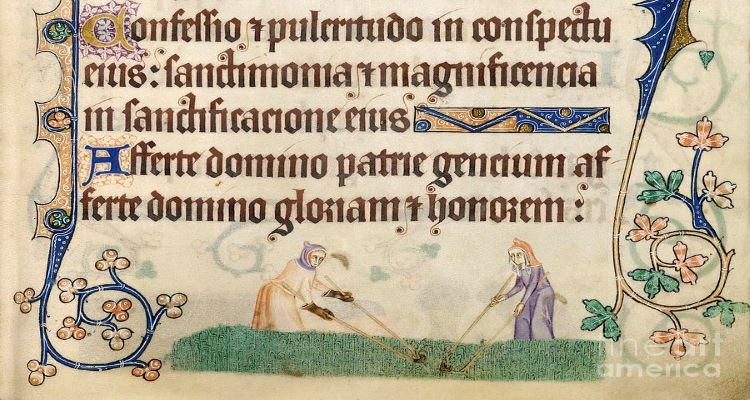 Confessio ⁊ pulcritudo in conspectu
eius: sanctimonia ⁊ magnificencia
in sanctificacione eius
Afferte domino patrie gencium af
ferte domino gloriam ⁊ honorem:
fine art
america